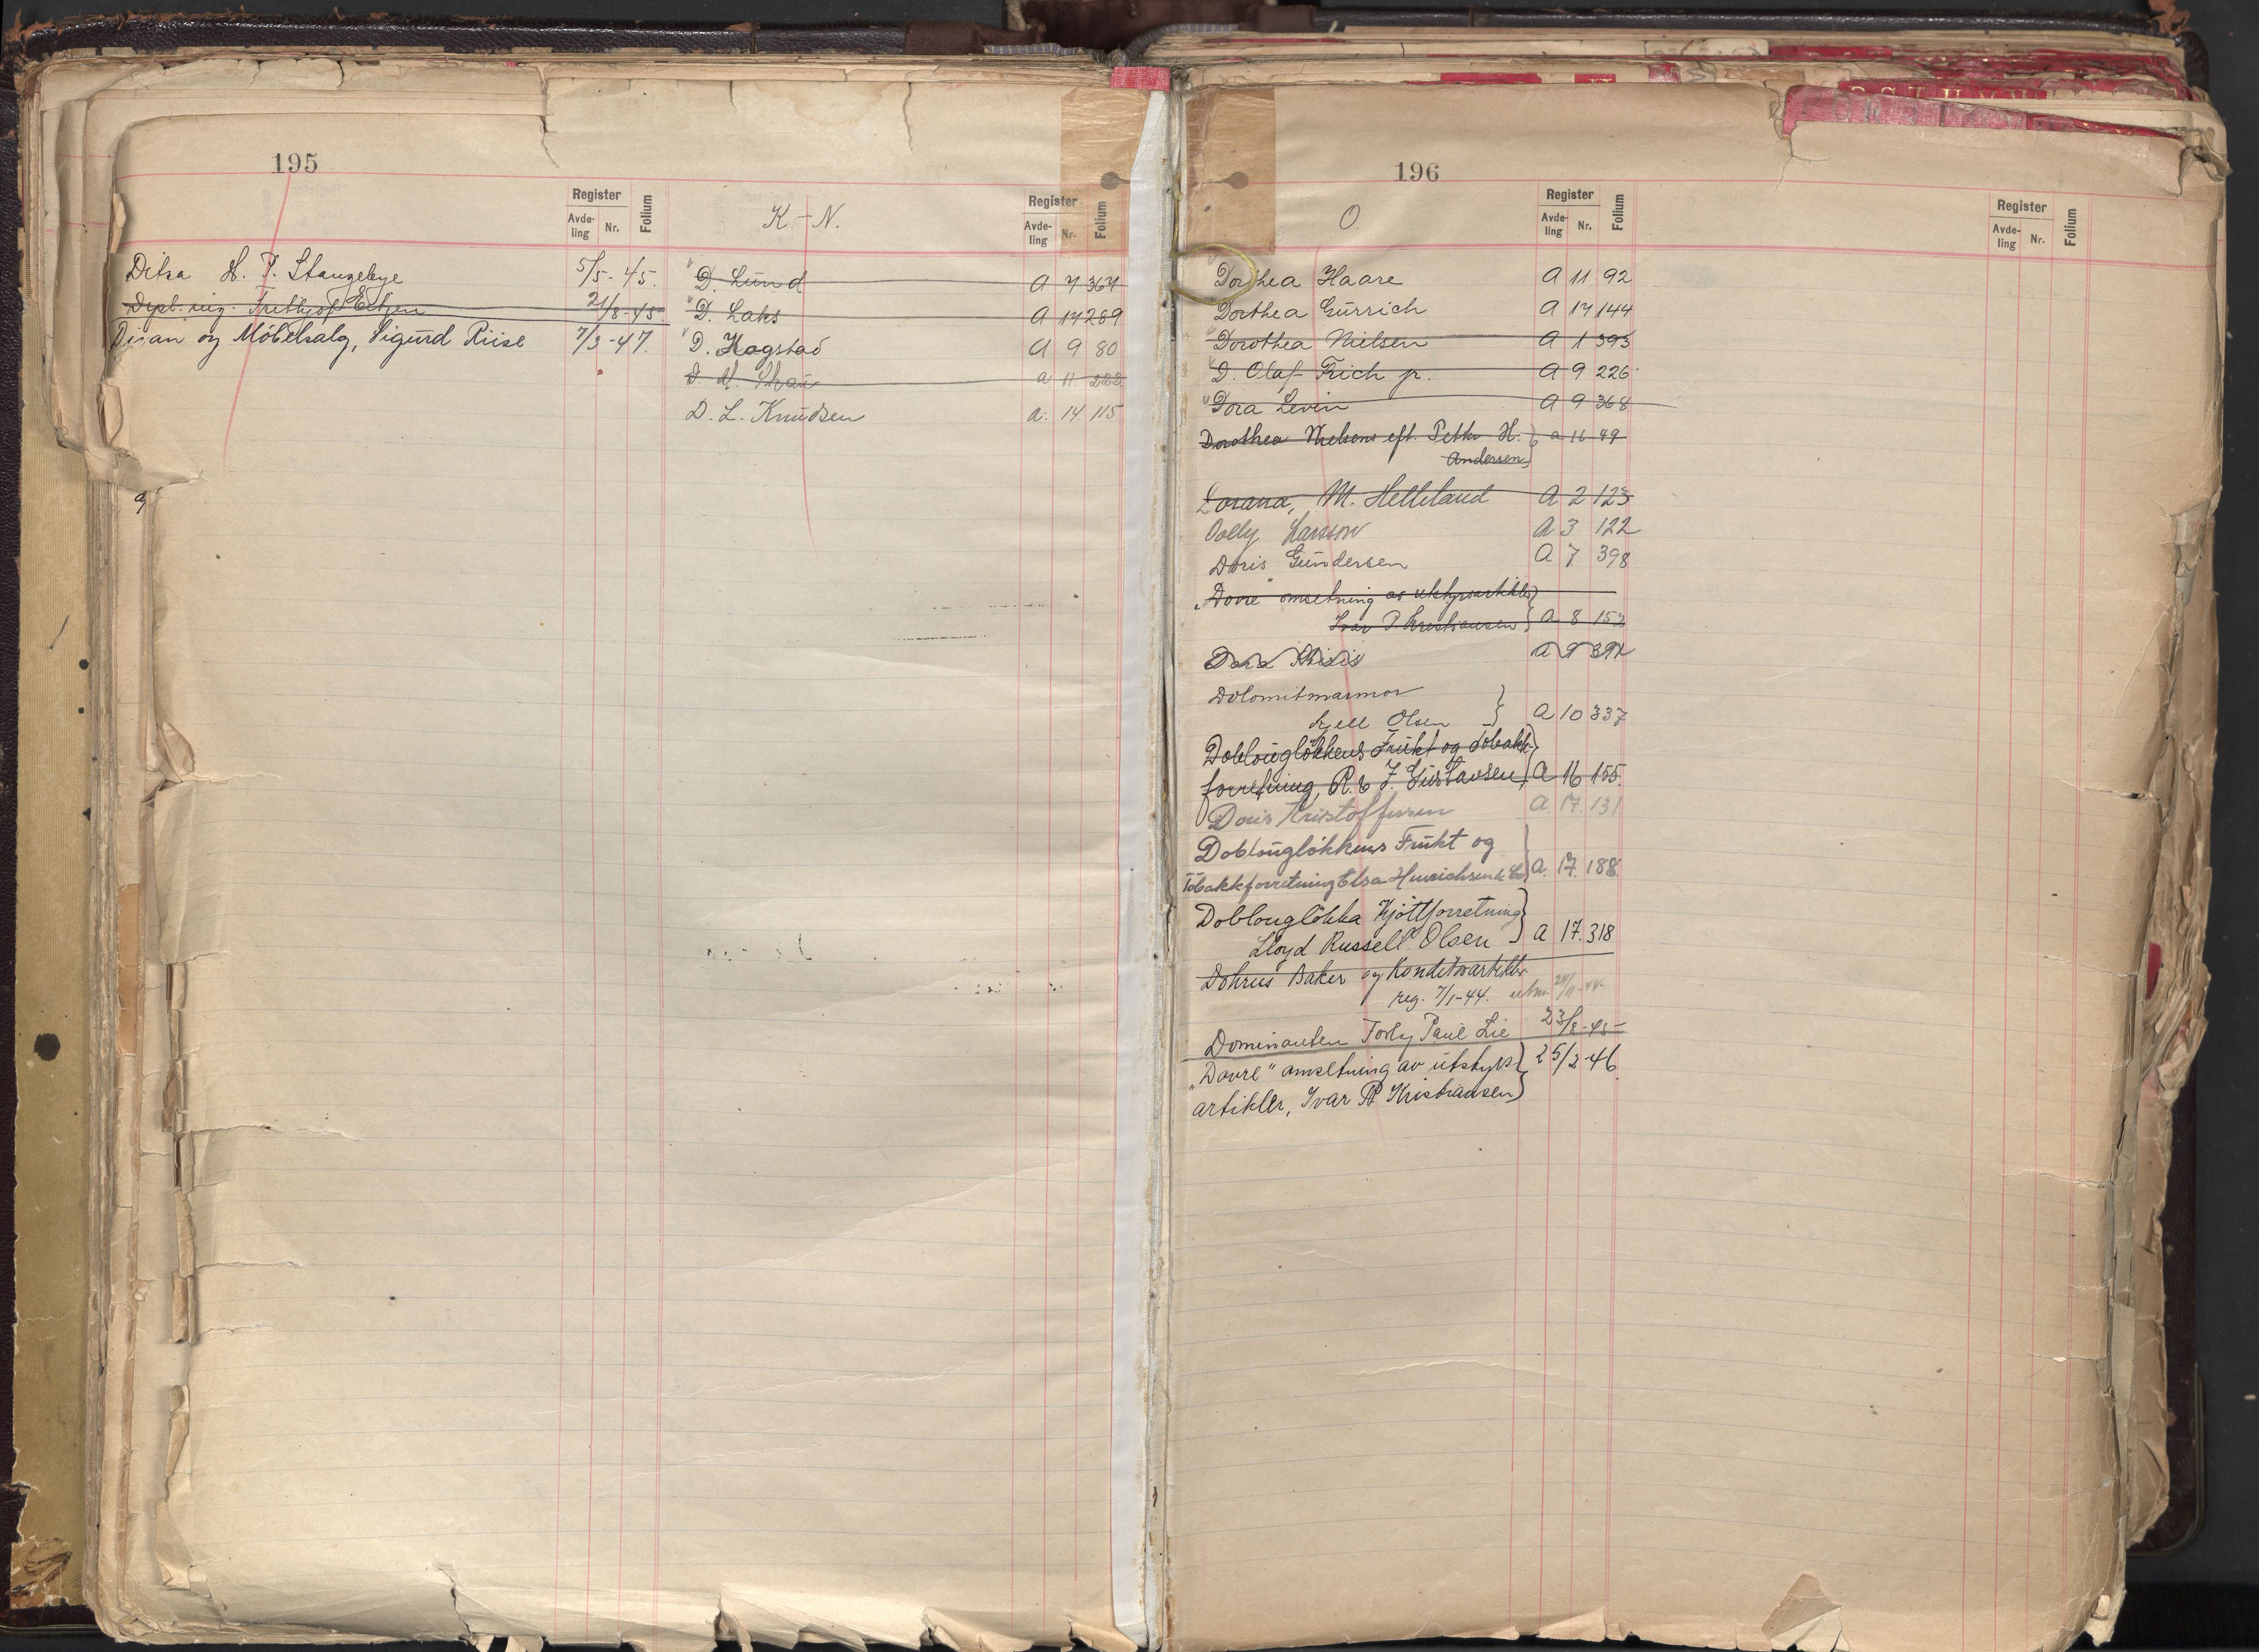 195
Register
Avde-
ling
Nr.
Folium
Ditsa H. P. Stangebye 5/5-45.
Dipl. ing. Frithjof 21/8-45
Divan og Möbelsalg, Sigurd Riise 7/3-47.
K-N.
Register
Avde-
ling
Nr.
Folium
D. Lund A 7 367
D. Laks A 14 289
D. Hagstad A 9 80
D. M. a 11. 222
D. L. Knudsen a. 14. 115
196
O.
Register
Avde-
ling
Nr.
Folium
Register
Avde-
ling
Nr.
Folium
Dorthea Haare A 11 92
Dorthea Gürrich A 14 144
Dorothea Nielsen A 1 393
D. Olaf Frich jr. A 9 226
Dora Levin A 9 368
Dorothea Nielsens eft. Petter H. a 16 49
Andersen
Dorana, M. Helleland A 2 123
Dolly Larsson A 3 122
Doris Gundersen A 7 398
"Dovre" omsetning av utstyrsartikler
Ivar P. Kristiansen A 8 153
Dolomitmarmor
Kjell Olsen A 10 337
Doblouglökkens Frukt og Tobakk
forretning, R. & J. Gustavsen A 16 155.
Doris Kristoffersen A. 17. 131
Doblouglökkens Frukt og
Tobakkforretning Elsa Henrichsen & Co A. 17. 188
Doblouglökka Kjöttforretning
Lloyd Russell Olsen A 17. 318
Dohrus Baker og Konditorartikler
reg. 7/1-44.
Dominanten Torly Paul Lie 23/8-45
"Dovre" omsetning av utstyrs- 25/2-46
artikler, Ivar P. Kristiansen